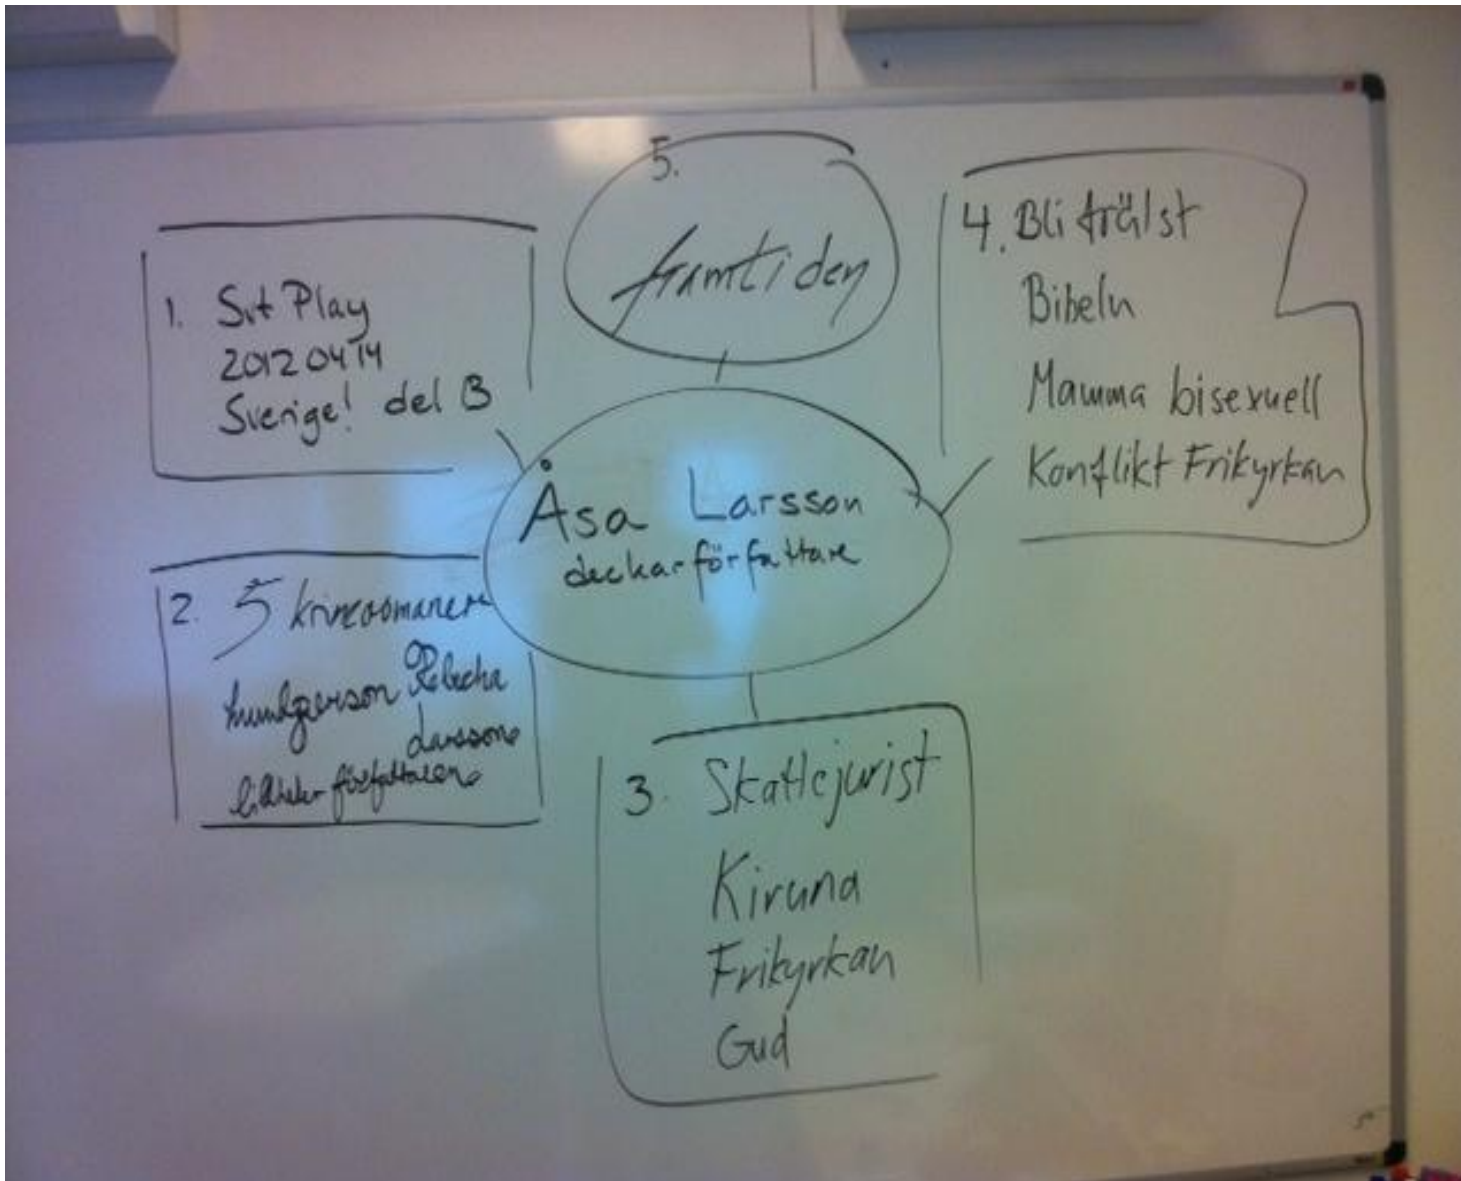 5.
framtiden
1. Svt Play
2012 04 14
Sverige! del 13
4. Bli frälst
Bibeln
Mamma bisexuell
Konflikt Frikyrkan
Åsa Larsson
deckarförfattare
2. 5 krimromaner
huvudperson Rebecka
Larsson
författaren
3. Skattejurist
Kiruna
Frikyrkan
Gud